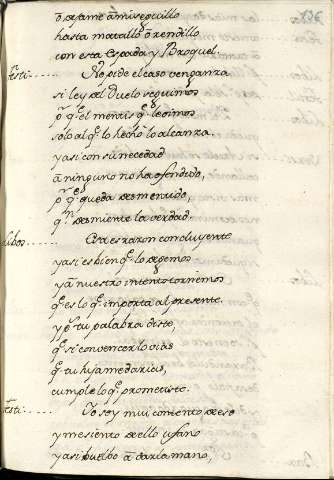 136
o dejame à mi seguillo
hasta matallo ò rendillo
con esta Espada y Broquel.
Testi..... No pide el caso venganza
si ley del Duelo seguimos
pr qe el mentis qe le dimos
solo al qe lo hecho lo alcanza.
y asi con su necedad
à ninguno no ha ofendido,
pr qe queda desmentido,
qn desmiente la verdad
Libos....... Esa es razon concluyente
y asi es bien qe lo dejemos
y à nuestro intento tornemos
qe es lo qe importa al presente.
y ps tu palabra distes,
qe si convencerlo vias
qe tu hija me darias,
cumple lo qe prometiste.
Testi: .... Yo soy mui contento de eso
y me siento de ello ufano
y asi buelbo à darla mano,